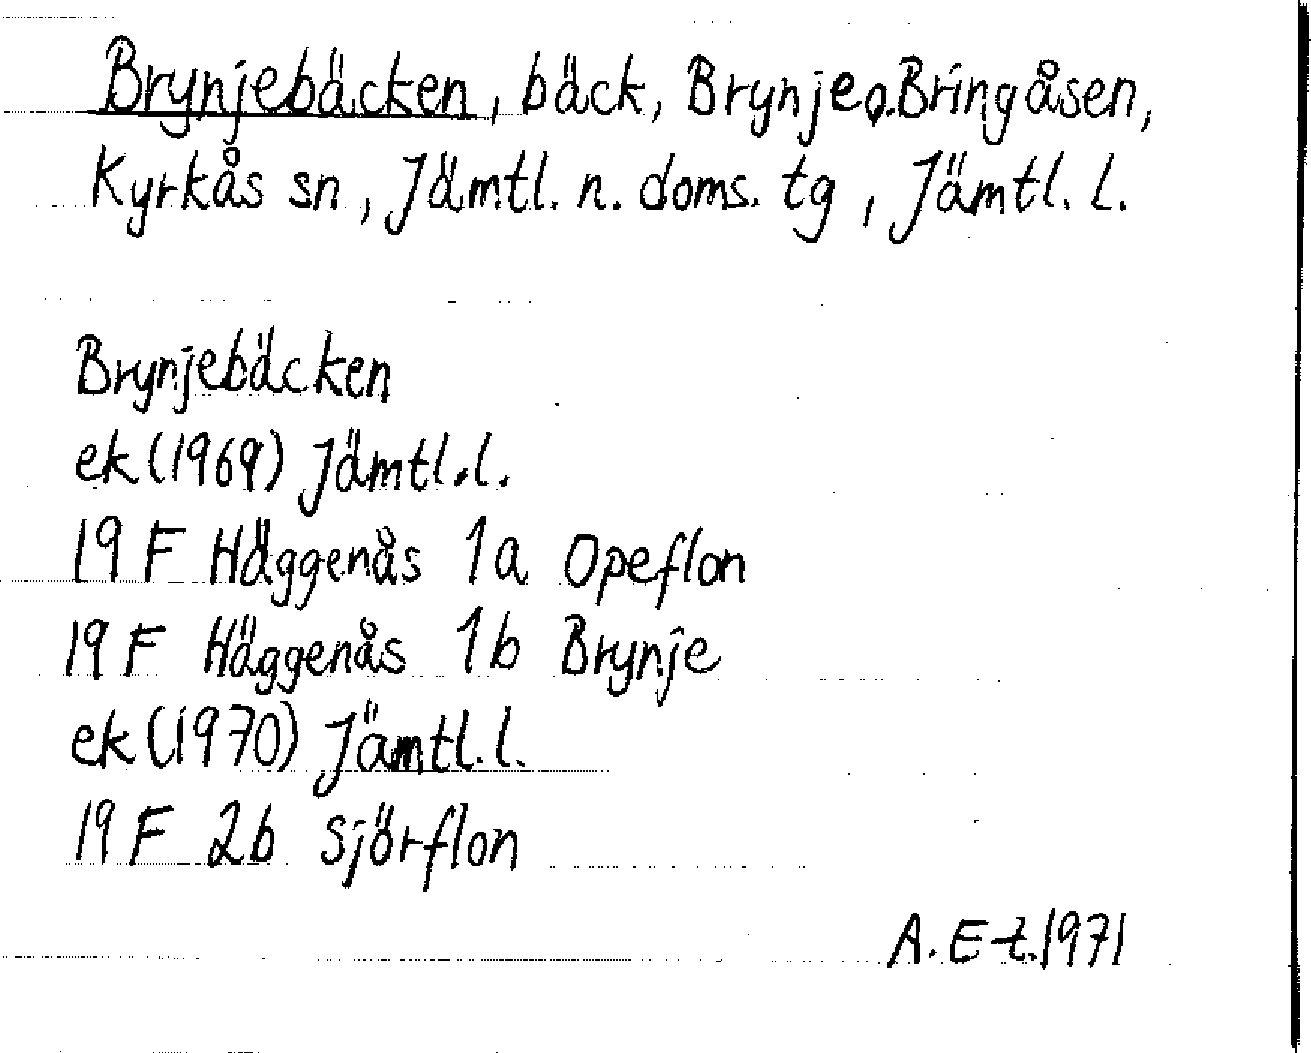 Brynjebäcken, bäck, Brynje o. Bringåsen,
Kyrkås sn, Jämtl. n. doms. tg, Jämtl. l.
Brynjebäcken
ek (1969) Jämtl. l.
19 F Häggenås 1a Opeflon
19 F Häggenås 1b Brynje
ek (1970) Jämtl. l.
19 F 2b Sjörflon
A. E-t. 1971